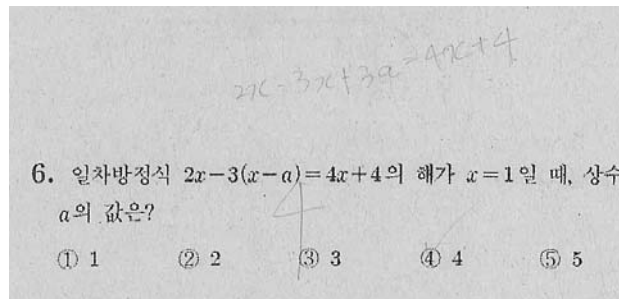 2x-3x+3a=4x+4
6. 일차방정식 2x-3(x-a)=4x+4의 해가 x=1일 때, 상수
a의 값은?
4
① 1 ② 2 ③ 3 ④ 4 ⑤ 5